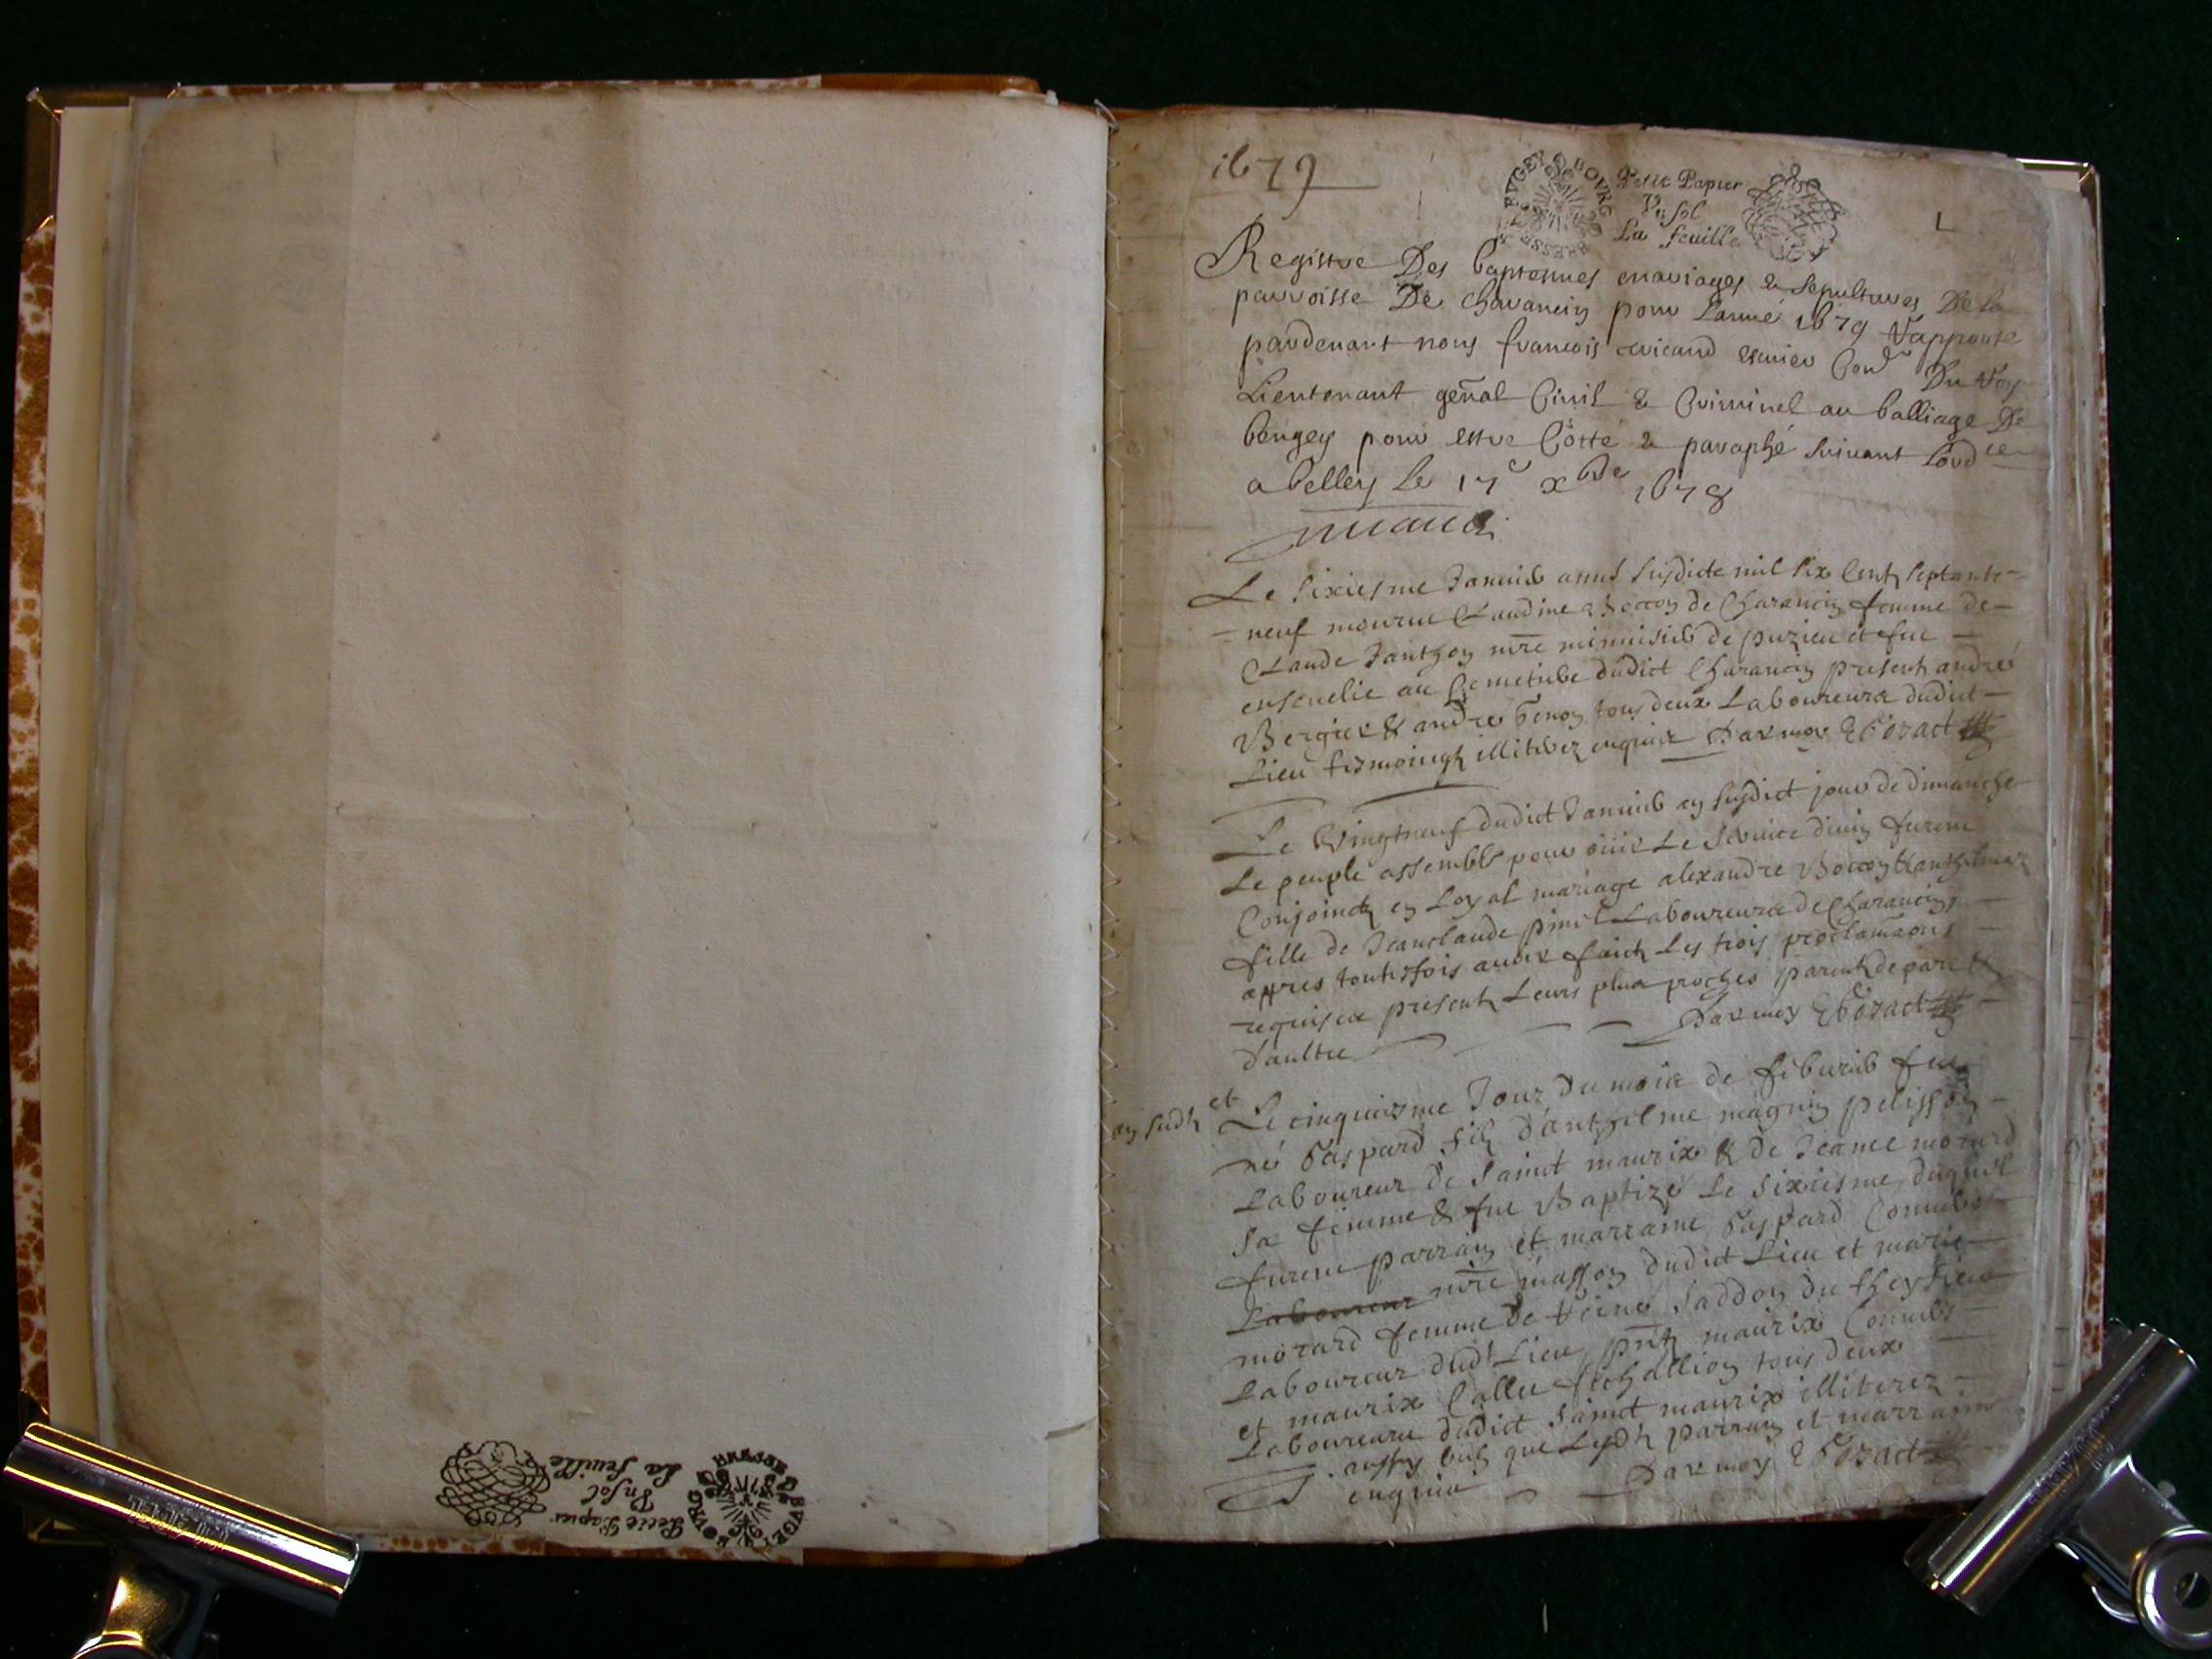 1679
BRESSE BVGEY BOVRG
Petit Papier
Vn sol
La feuille
Registre Des baptesmes mariages & sepultures De la
parroisse De Charancin pour Lanné 1679 Rapporté
pardevant nous francois escuier Con.er Du Roy
Lieutenant gēnal Civil & Criminel au balliage De
beugey pour estre Cotté & paraphé suivant Lord.ce
a belley Le 17e xbre 1678
Le sixiesme Janvier anné susdicte mil six Centz septante-
neuf mourut Claudine Boccon de Charancin femme de
Claude Janthon mre menuisier de puzieu et fut
ensevelie au Cemetiere dudict Charancin presentz andré
Bergier & andre benoy tous deux Laboureurs dudict
Lieu tesmoingtz illiterez enquis Par moy
Le Vingtneuf dudict Janvier an susdict jour de dimanche
Le peuple assemblé pour ouir Le Service divin furent
Conjoinctz en Loyal mariage alexandre Boccon &
fille de Jeanclaude Laboureurs de Charancin
appres toutesfois avoir faict Les trois proclamaons
requises presentz Leurs plus proches parentz de part &
d'aultre Par moy
an sudt et Le cinquiesme Jour du mois de febvrier fut
né Gaspard filz d'anthelme magnin pelisson
Laboureur de Sainct maurix & de Jeanne morard
sa femme & fut Baptizé le sixiesme, duquel
furent parrain et marrame Gaspard
Laboureur mre masson dudict Lieu et marie
morard femme de saddon du
Laboureur dudt Lieu pntz maurix
et maurix tous deux
Laboureurs dudict Sainct maurix illiterez
aussy bien que Lesdtz parrain et marrame
enquis Par moy
Petit Papier
Vn sol
La feuille
BRESSE BVGEY BOVRG